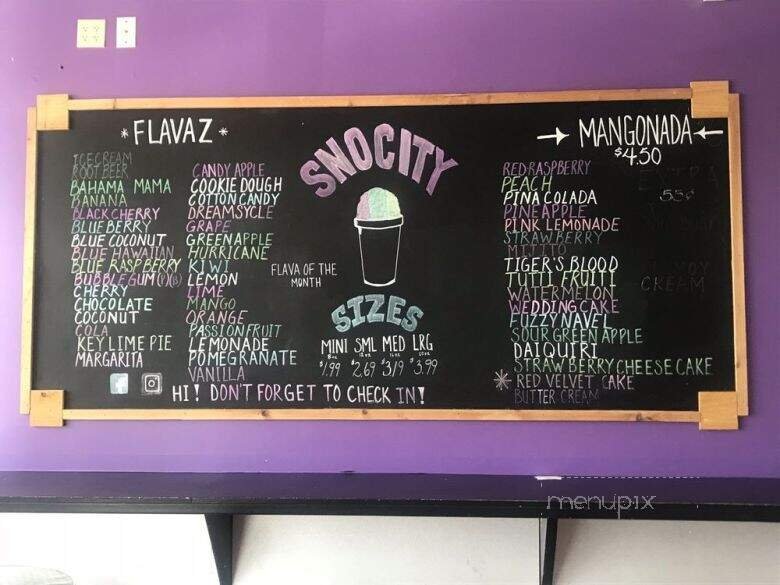 *FLAVAZ*
ICECREAM
ROOT BEER
BAHAMA MAMA
BANANA
BLACK CHERRY
BLUEBERRY
BLUE COCONUT
BLUE HAWAIIAN
BLUE RASPBERRY
BUBBLEGUM(P)(B)
CHERRY
CHOCOLATE
COCONUT
COLA
KEY LIME PIE
MARGARITA
CANDY APPLE
COOKIE DOUGH
COTTON CANDY
DREAMSYCLE
GRAPE
GREEN APPLE
HURRICANE
KIWI
LEMON
LIME
MANGO
ORANGE
PASSIONFRUIT
LEMONADE
POMEGRANATE
VANILLA
SNOCITY
FLAVA OF THE
MONTH
SIZES
MINI SML MED LRG
8oz 12oz 16oz 20oz
$1.99 $2.69 $3.19 $3.99
→ MANGONADA ←
$4.50
RED RASPBERRY
PEACH
PINA COLADA
PINEAPPLE
PINK LEMONADE
STRAWBERRY
MOJITO
TIGER'S BLOOD
TUTTI FRUITTI
WATERMELON
WEDDING CAKE
FUZZY NAVEL
SOUR GREEN APPLE
DAIQUIRI
STRAWBERRY CHEESE CAKE
* RED VELVET CAKE
BUTTER CREAM
EXTRA
55¢
CREAM
HI! DON'T FORGET TO CHECK IN!
menupix